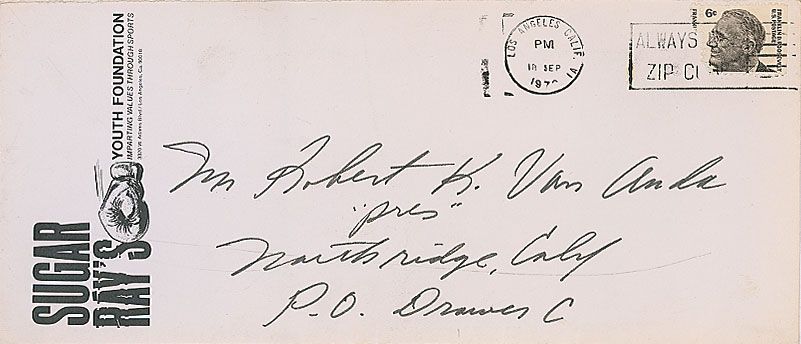 SUGAR
RAY'S
YOUTH FOUNDATION
IMPARTING VALUES THROUGH SPORTS
W. Adams Blvd / Los Angeles, Ca. 90018
LOS ANGELES CALIF. 1A
PM
18 SEP
ALWAYS
ZIP
6¢
FRANKLIN D. ROOSEVELT
U.S. POSTAGE
Mr Robert K. Van Anda
"pres"
Northridge, Calif
P.O. Drawer C